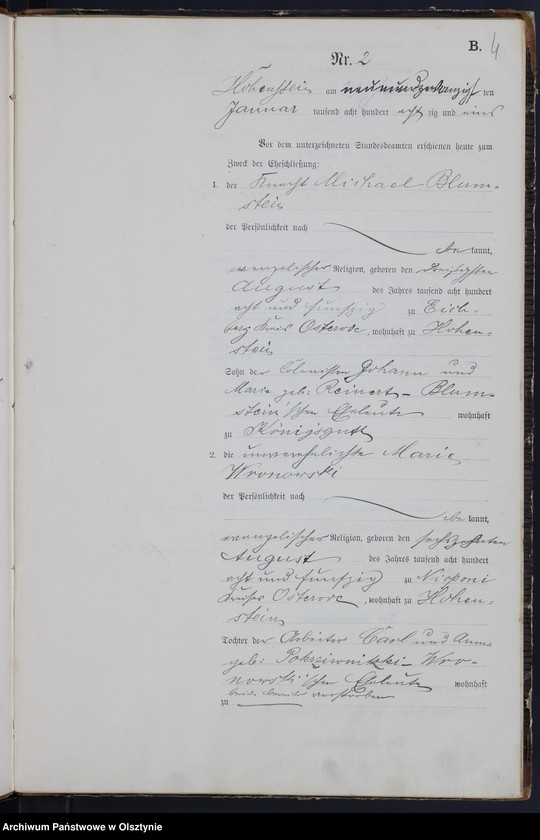 B. 4
Nr. 2
Hohenstein am neunundzwanzigsten
Januar tausend acht hundert achtzig und eins
Vor dem unterzeichneten Standesbeamten erschienen heute zum
Zweck der Eheschließung:
1. der Knecht Michael Blum-
stein
der Persönlichkeit nach
bekannt,
evangelischer Religion, geboren den dreißigsten
August des Jahres tausend acht hundert
acht und funfzig zu Eich-
berg Kreis Osterode, wohnhaft zu Hohen-
stein
Sohn der Colonisten Johann und
Marie geb. Reinert - Blum-
stein'schen Eheleute wohnhaft
zu Königsgutt
2. die unverehelichte Marie
Wronowski
der Persönlichkeit nach
bekannt,
evangelischer Religion, geboren den sechszehnten
August des Jahres tausend acht hundert
acht und funfzig zu
Kreises Osterode, wohnhaft zu Hohen-
stein
Tochter der Arbeiter Carl und Anna
geb. Pokrziwnitzki - Wro-
nowski'schen Eheleute wohnhaft
beide bereits verstorben
zu
Archiwum Państwowe w Olsztynie